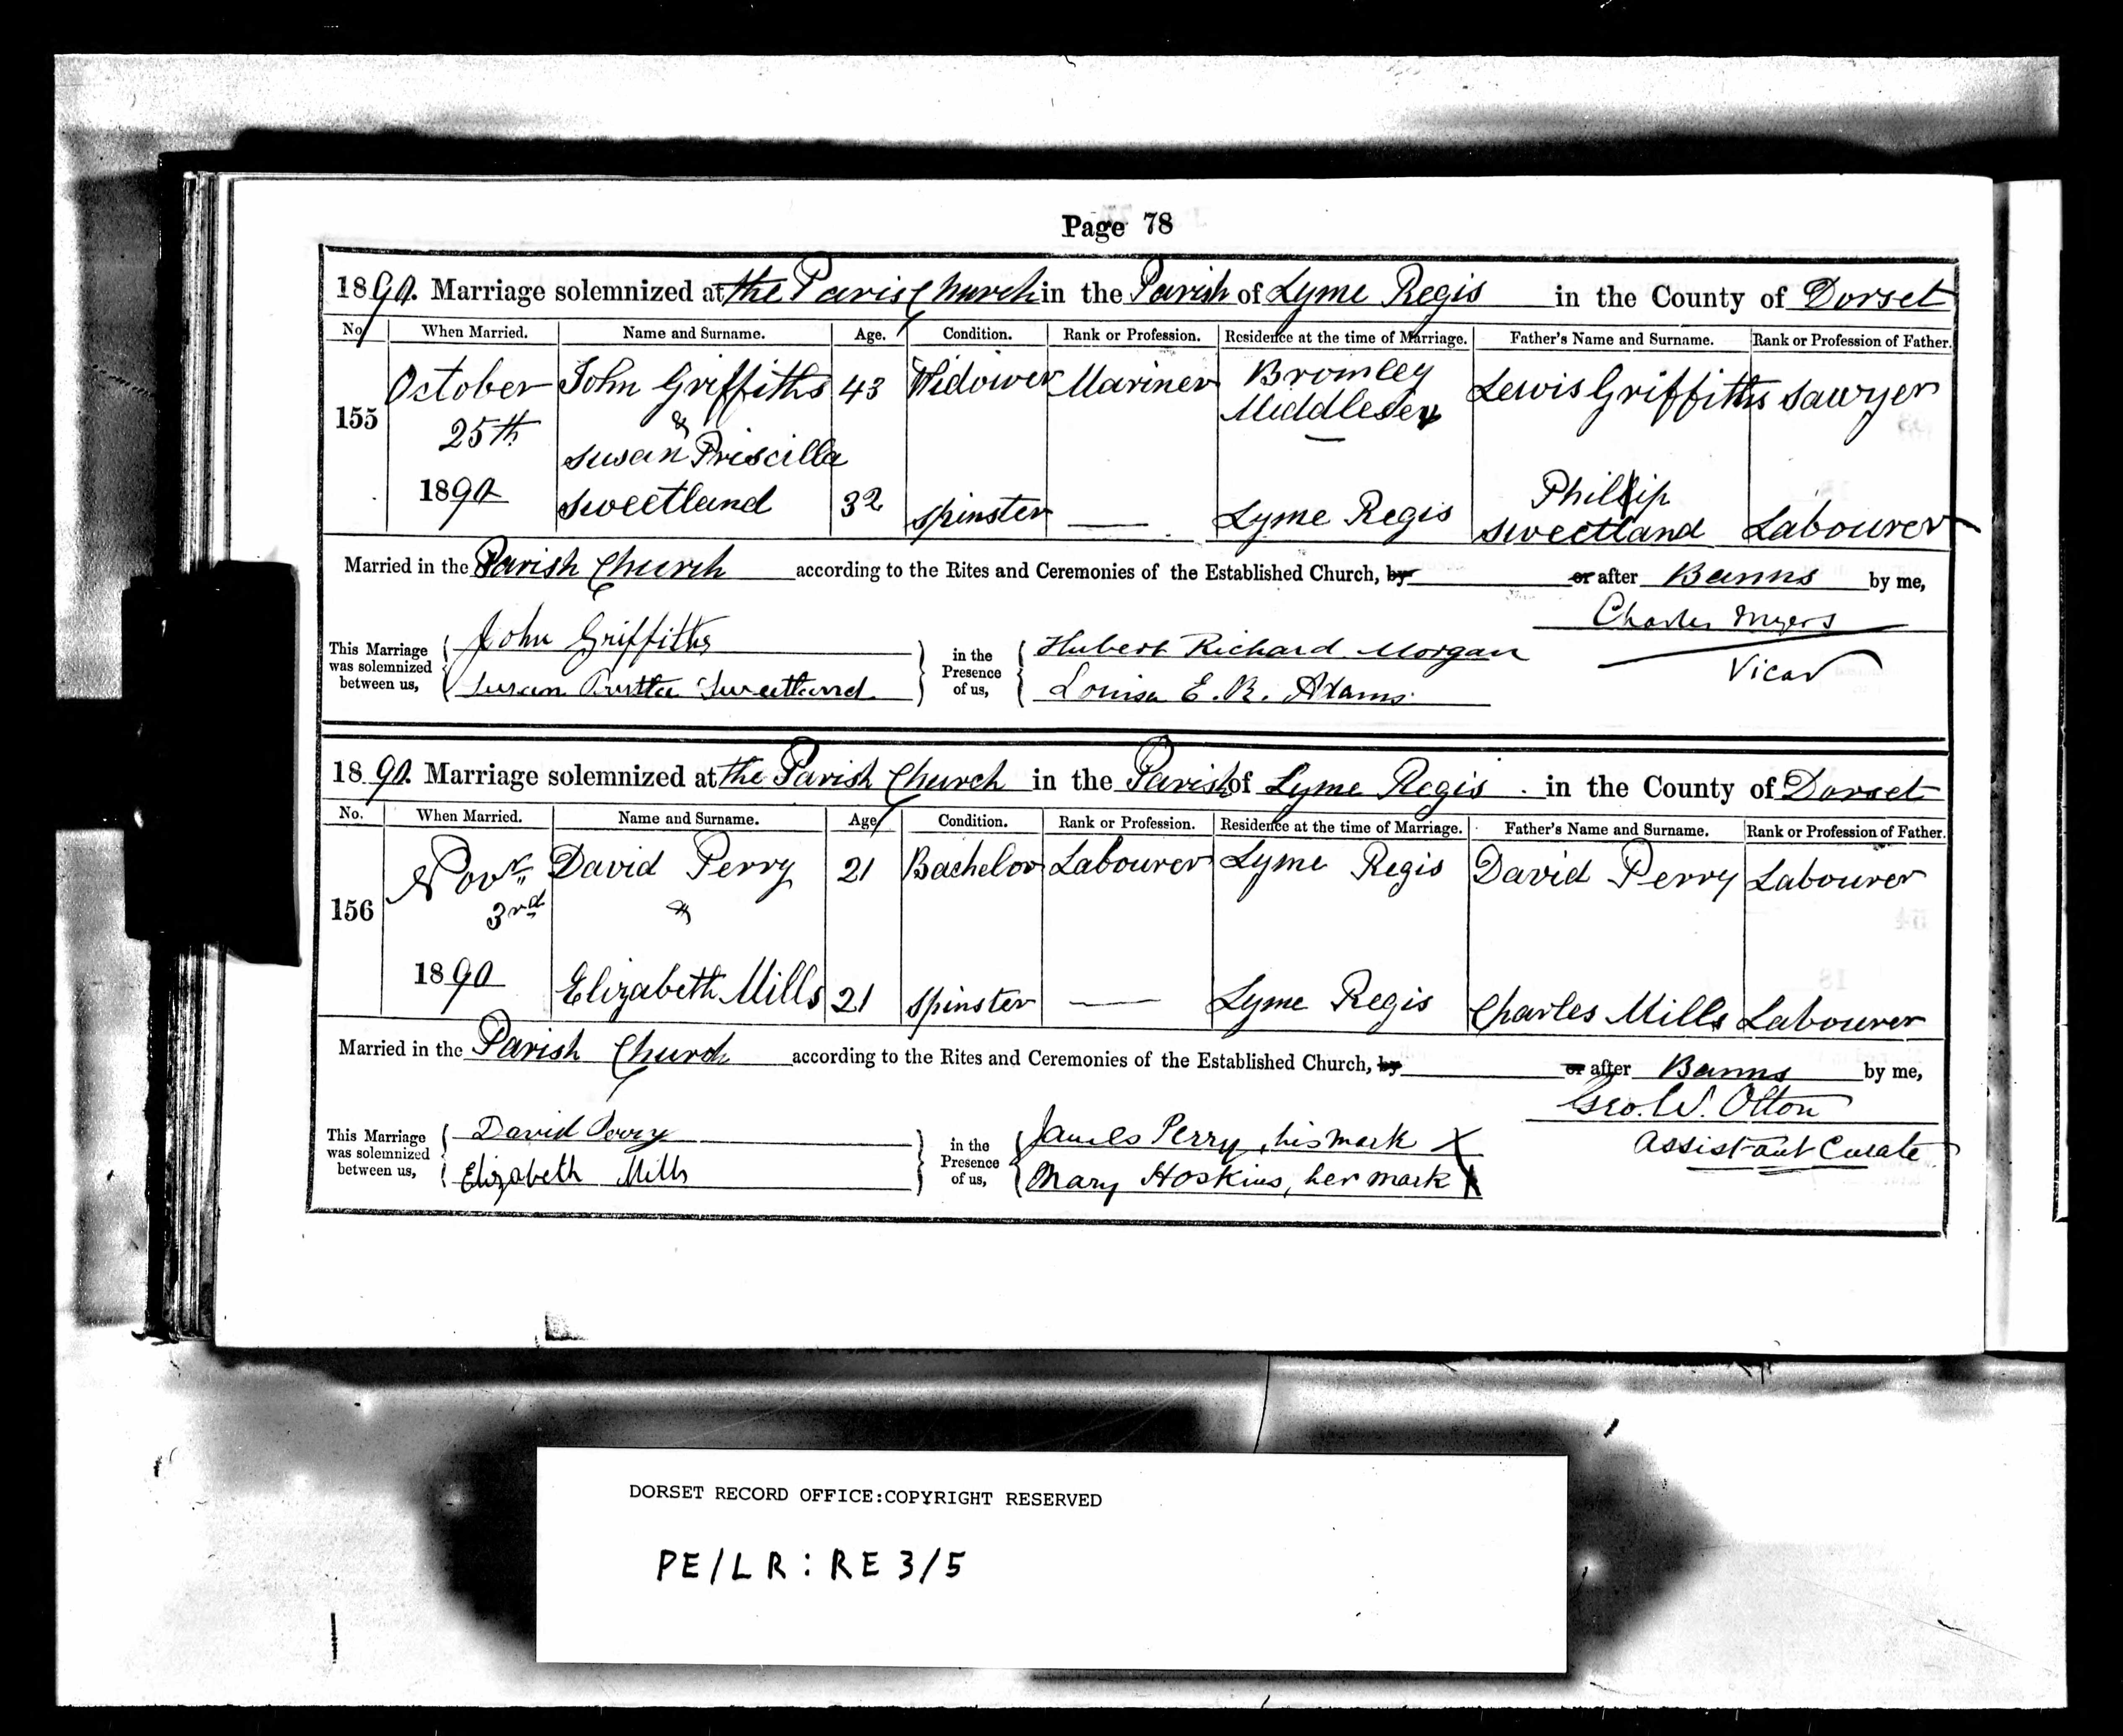 Page 78
1890. Marriage solemnized at the Paris Church in the Parish of Lyme Regis in the County of Dorset
No. When Married. Name and Surname. Age. Condition. Rank or Profession. Residence at the time of Marriage. Father's Name and Surname. Rank or Profession of Father.
155 October 25th 1890 John Griffiths 43 Widower Mariner Bromley Middlesex Lewis Griffiths Sawyer
&
Susan Priscilla Sweetland 32 Spinster — Lyme Regis Phillip Sweetland Labourer
Married in the Parish Church according to the Rites and Ceremonies of the Established Church, by or after Banns by me,
Charles Myers
Vicar
This Marriage was solemnized between us, John Griffiths
Susan Sweetland
in the Presence of us, Hubert Richard Morgan
Louisa E. R. Adams.
1890. Marriage solemnized at the Parish Church in the Parish of Lyme Regis in the County of Dorset
No. When Married. Name and Surname. Age Condition. Rank or Profession. Residence at the time of Marriage. Father's Name and Surname. Rank or Profession of Father.
156 Novr. 3rd 1890 David Perry 21 Bachelor Labourer Lyme Regis David Perry Labourer
&
Elizabeth Mills 21 Spinster — Lyme Regis Charles Mills Labourer
Married in the Parish Church according to the Rites and Ceremonies of the Established Church, by or after Banns by me,
Geo. W. Olton
Assistant Curate
This Marriage was solemnized between us, David Perry
Elizabeth Mills
in the Presence of us, James Perry, his mark X
Mary Hoskins, her mark X
DORSET RECORD OFFICE:COPYRIGHT RESERVED
PE/LR:RE 3/5